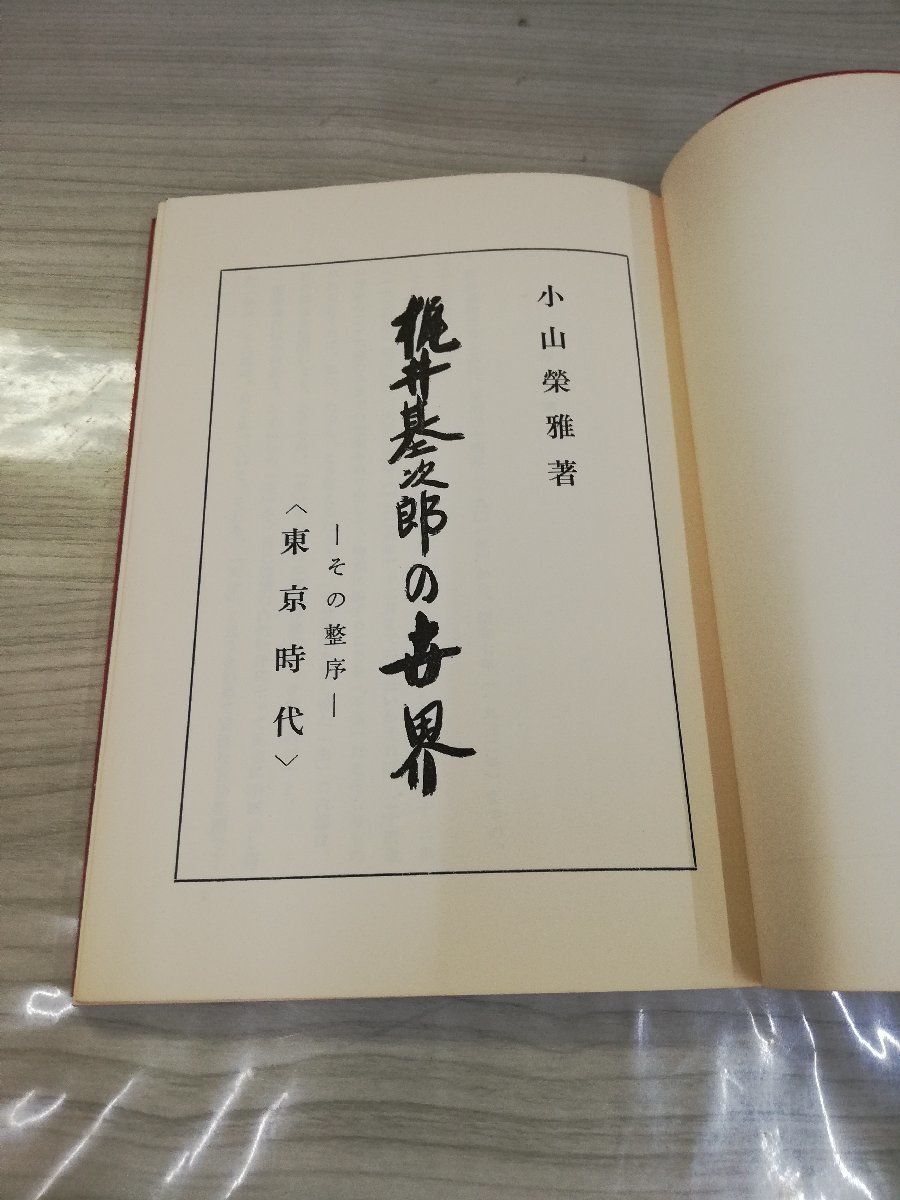 小山榮雅著
梶井基次郎の世界
―その整序―
〈東京時代〉